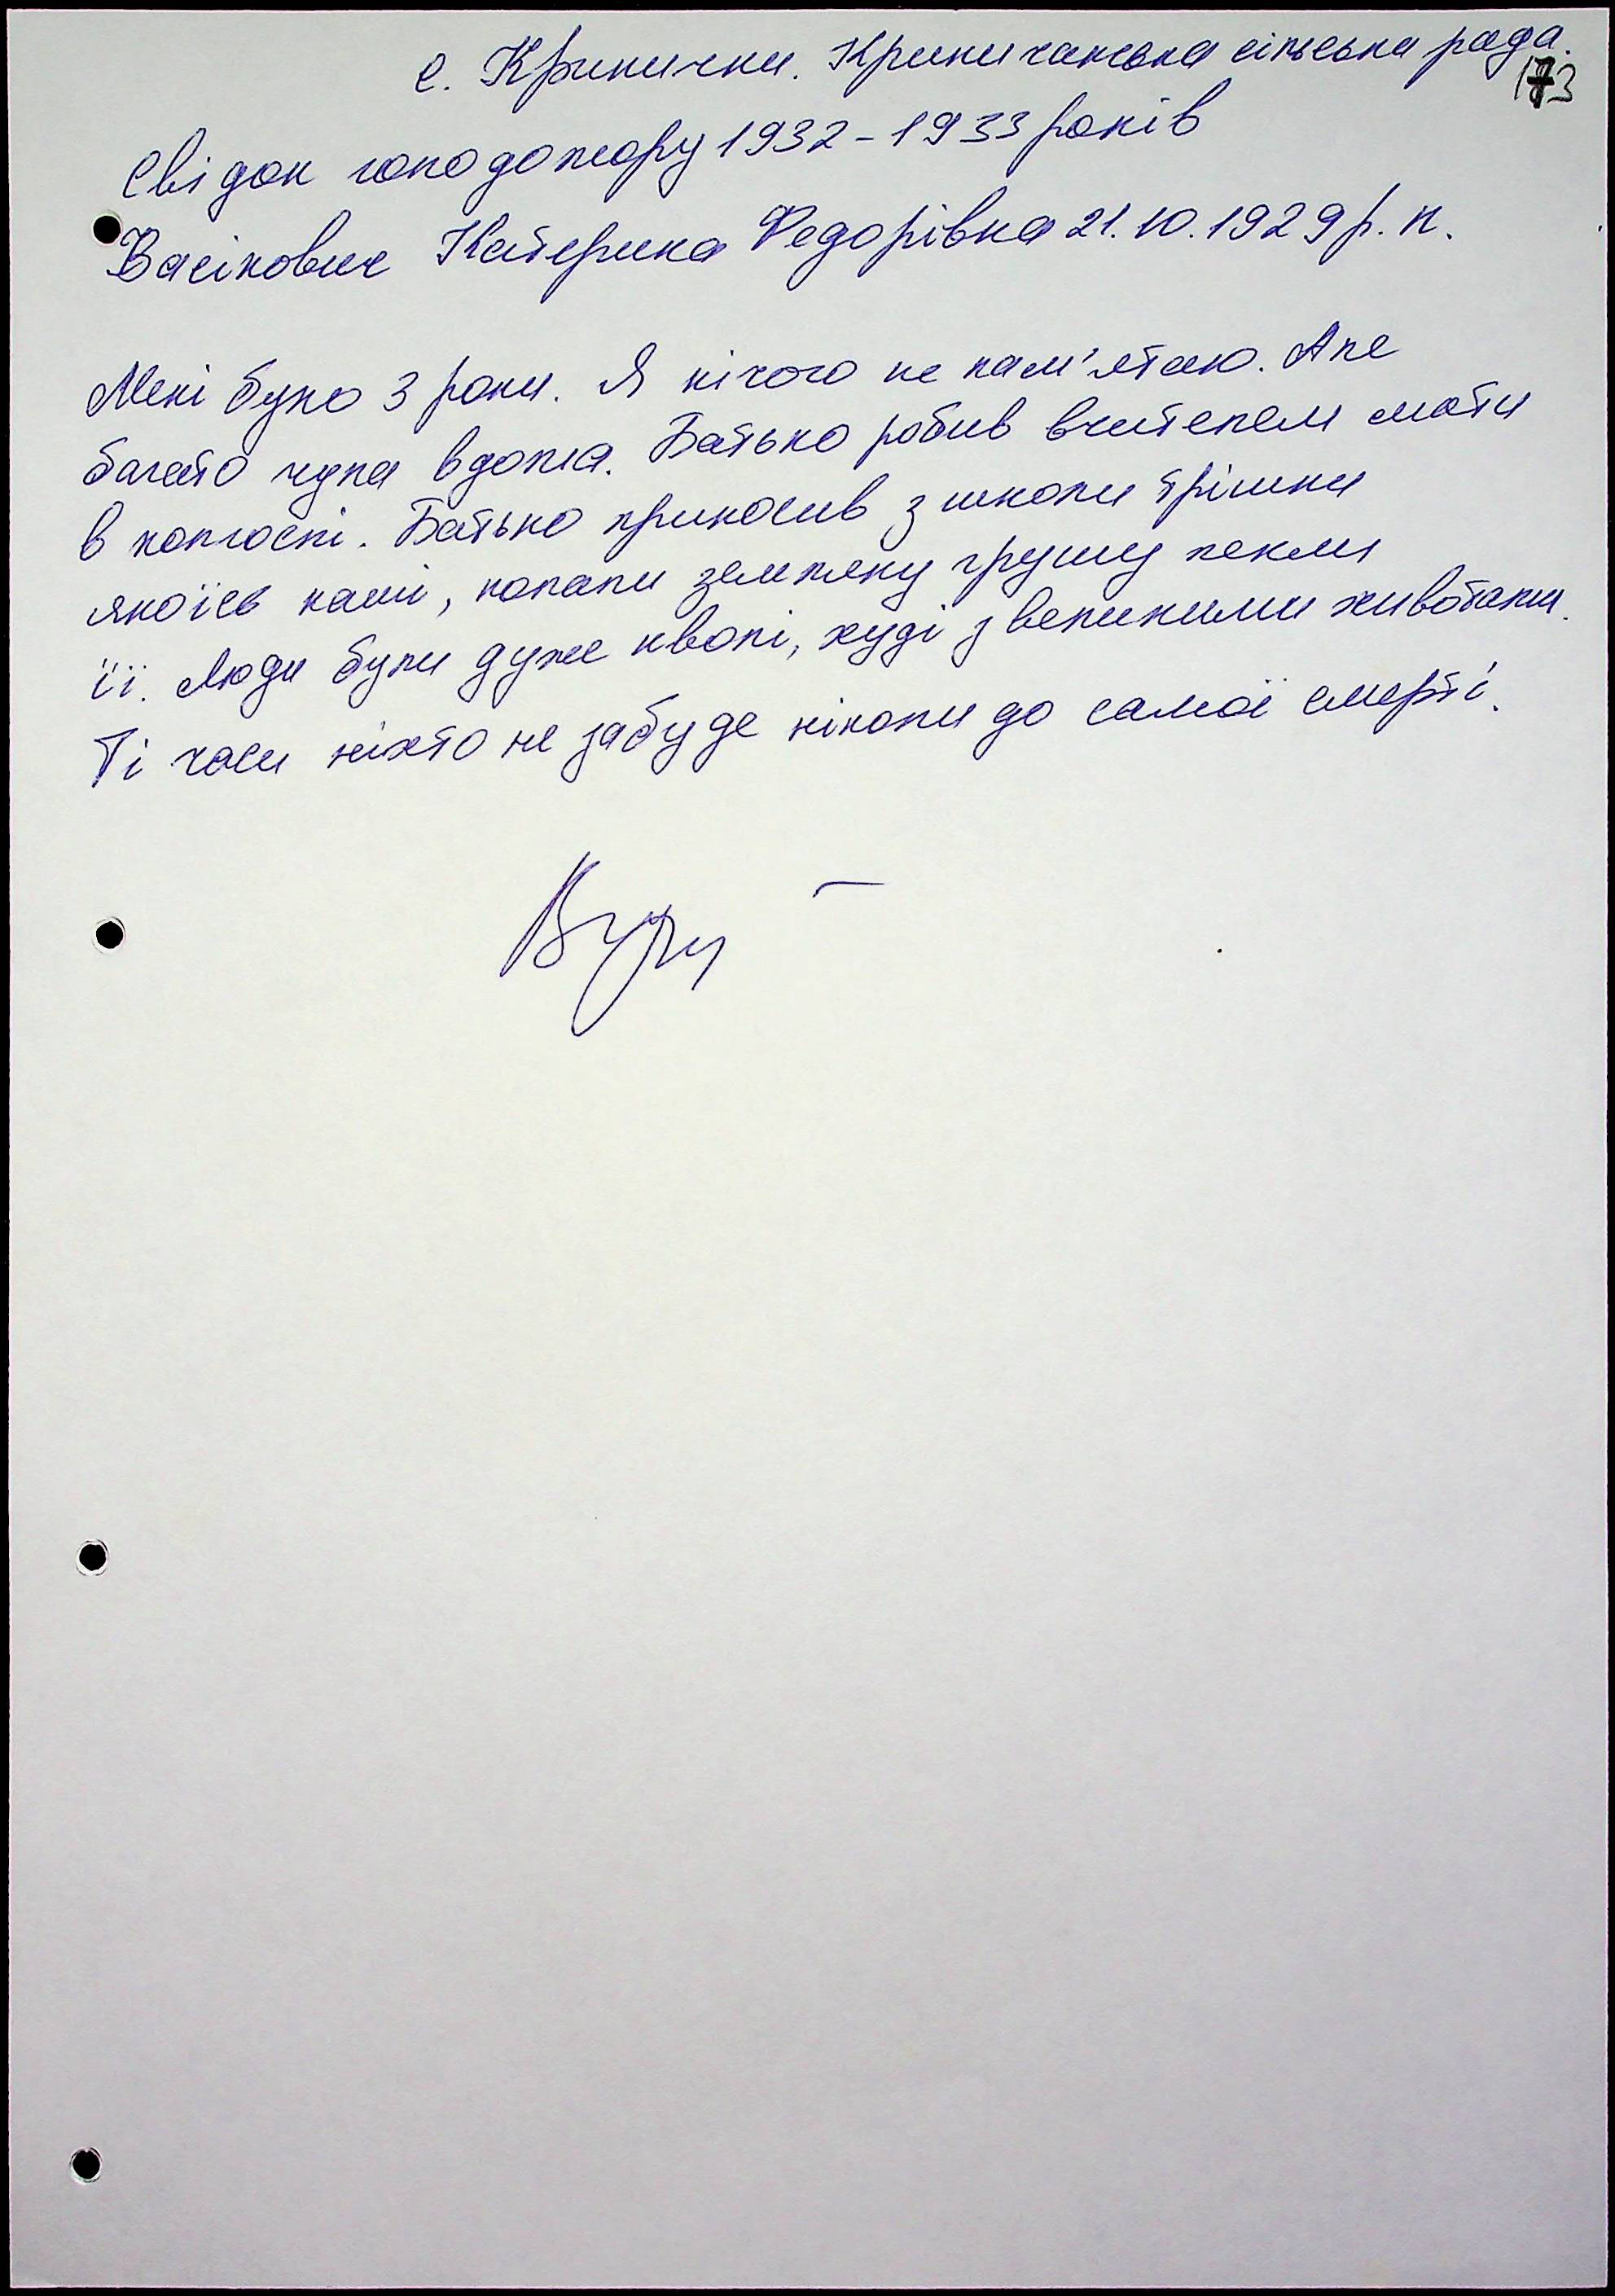 с. Кринички. Криничанська сільська рада.
173
Свідок голодомору 1932-1933 років
Васікович Катерина Федорівна 21.10.1929 р. н.
Мені було 3 роки. Я нічого не пам'ятаю. Але
багато чула вдома. Батько робив вчителем мати
в колгоспі. Батько приносив з школи трішки
якоїсь каші, копали земляну грушу пекли
її. Люди були дуже кволі, худі з великими животами.
Ті часи ніхто не забуде ніколи до самої смерті.